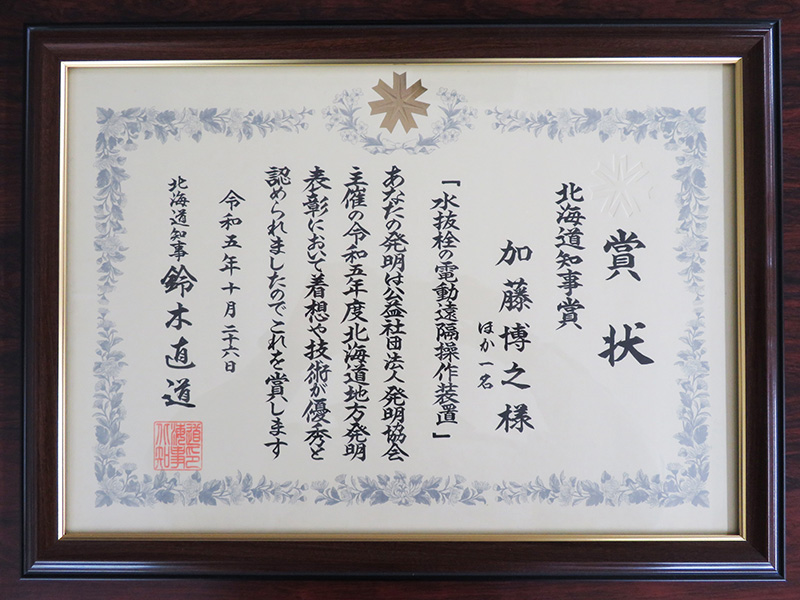 賞状
北海道知事賞
加藤博之様
ほか一名
「水抜栓の電動遠隔操作装置」
あなたの発明は公益社団法人発明協会
主催の令和五年度北海道地方発明
表彰において着想や技術が優秀と
認められましたのでこれを賞します
令和五年十月二十六日
北海道知事 鈴木直道